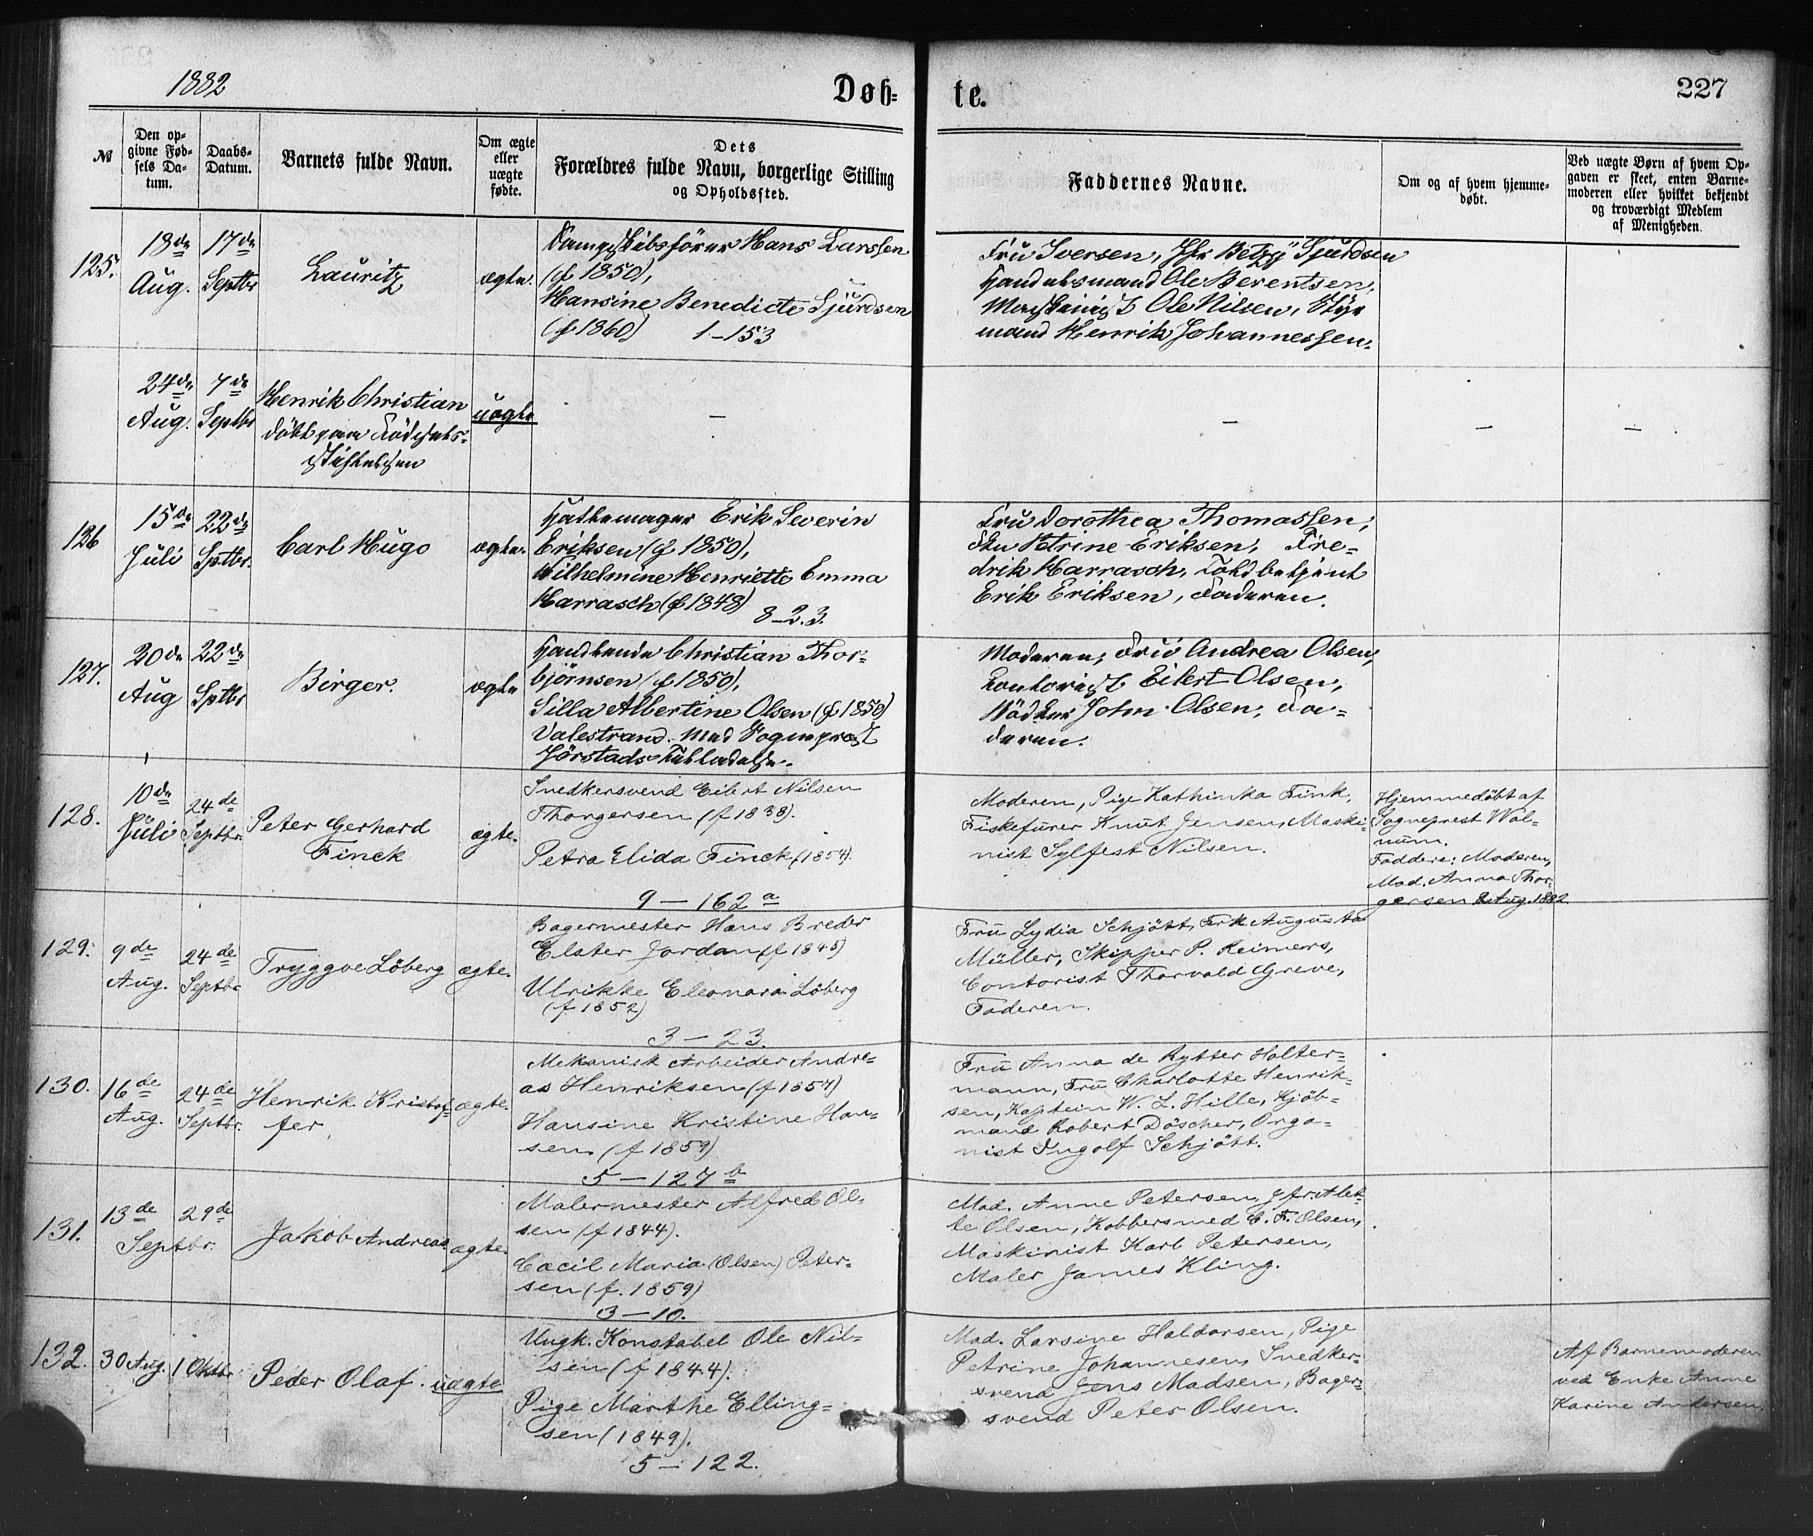 1882
Døb-
te.
227
№
Den op-
givne Fød-
sels Da-
tum.
Daabs-
Datum.
Barnets fulde Navn.
Om ægte
eller
uægte
fødte.
Dets
Forældres fulde Navn, borgerlige Stilling
og Opholdssted.
Faddernes Navne.
Om og af hvem hjemme-
døbt.
Ved uægte Børn af hvem Op-
gaven er skeet, enten Barne-
moderen eller hvilket bekjendt
og troværdigt Medlem
af Menigheden.
125.
18de
Aug.
17de
Septbr
Lauritz
ægte.
Dampskibsfører Hans Larssen
(f 1850),
Hansine Benedicte Sjurdsen
(f 1860) 1-153
Fru Iversen, Jfr Betzy Sjurdsen
Handelsmand Ole Berentsen,
Maskinist Ole Nilsen, Styr
mand Henrik Johannessen.
24de
Aug.
7de
Septbr
Henrik Christian
døbt paa Fødsels-
stiftelsen
uægte
-
-
-
-
126
15de
Juli
22de
Sptbr.
Carl Hugo
ægte.
Hattemager Erik Severin
Eriksen (f 1850),
Wilhelmine Henriette Emma
Harrasch (f 1848) 8-2.3.
Fru Dorothea Thomassen,
Frk Petrine Eriksen, Fre-
drik Harrasch, Toldbetjent
Erik Eriksen, Faderen.
127.
20de
Aug
22de
Sptbr
Birger.
ægte
Handlende Christian Thor-
bjørnsen (f 1850),
Silla Albertine Olsen (f 1850)
Valestrand. Med Sogneprest
Jørstads Tilladelse.
Moderen, Fru Andrea Olsen,
Kontorist Eilert Olsen,
Bødker John Olsen, Fa-
deren.
128.
10de
Juli
24de
Septbr.
Peter Gerhard
Finck
ægte.
Snedkersvend Eilert Nilsen
Thorgersen (f 1838).
Petra Elida Finck (1854).
9-162a
Moderen, Pige Kathinka Fink,
Fiskefører Knut Jensen, Maski-
nist Sylfest Nilsen.
Hjemmedøbt af
Sogneprest Wal-
num.
Faddere: Moderen,
Mad. Anna Thor-
gersen 2 Aug. 1882
129.
9de
Aug.
24de
Septbr.
Tryggve Løberg
ægte.
Bagermester Hans Breder
Elster Jordan (f 1845)
Ulrikke Eleonora Løberg
(f 1852)
3-23.
Fru Lydia Schjøtt, Frk Augusta
Müller, Skipper P. Reimers,
Contorist Thorvald Greve,
Faderen.
130.
16de
Aug.
24de
Septbr.
Henrik Kristof-
fer,
ægte.
Mekanisk Arbeider Andre-
as Henriksen (f 1854)
Hansine Kristine Han-
sen (f 1859)
5-127b
Fru Anna de Rytter Holter-
mann, Fru Charlotte Henrik-
sen, Kaptein W. L. Hille, Kjøb-
mand Robert Döscher, Orga-
nist Ingolf Schjøtt.
131.
13de
Septbr.
29de
Jakob Andreas
ægte.
Malermester Alfred Ol-
sen (f 1844).
Cæcil Maria (Olsen) Peter-
sen (f. 1859)
3-10.
Mad. Anne Petersen, Jfr. Alet-
te Olsen, Kobbersmed C. F. Olsen,
Maskinist Karl Petersen,
Maler James Kling.
132.
30 Aug.
1 Oktbr
Peder Olaf.
uægte
Ungk. Konstabel Ole Nil-
sen (f 1844).
Pige Marthe Elling-
sen (1849).
5-122.
Mad. Larsine Haldorsen, Pige
Petrine Johannesen, Snedker-
svend Jens Madsen, Bager-
svend Peter Olsen.
Af Barnemoderen
ved Enke Anne
Karine Andersen.